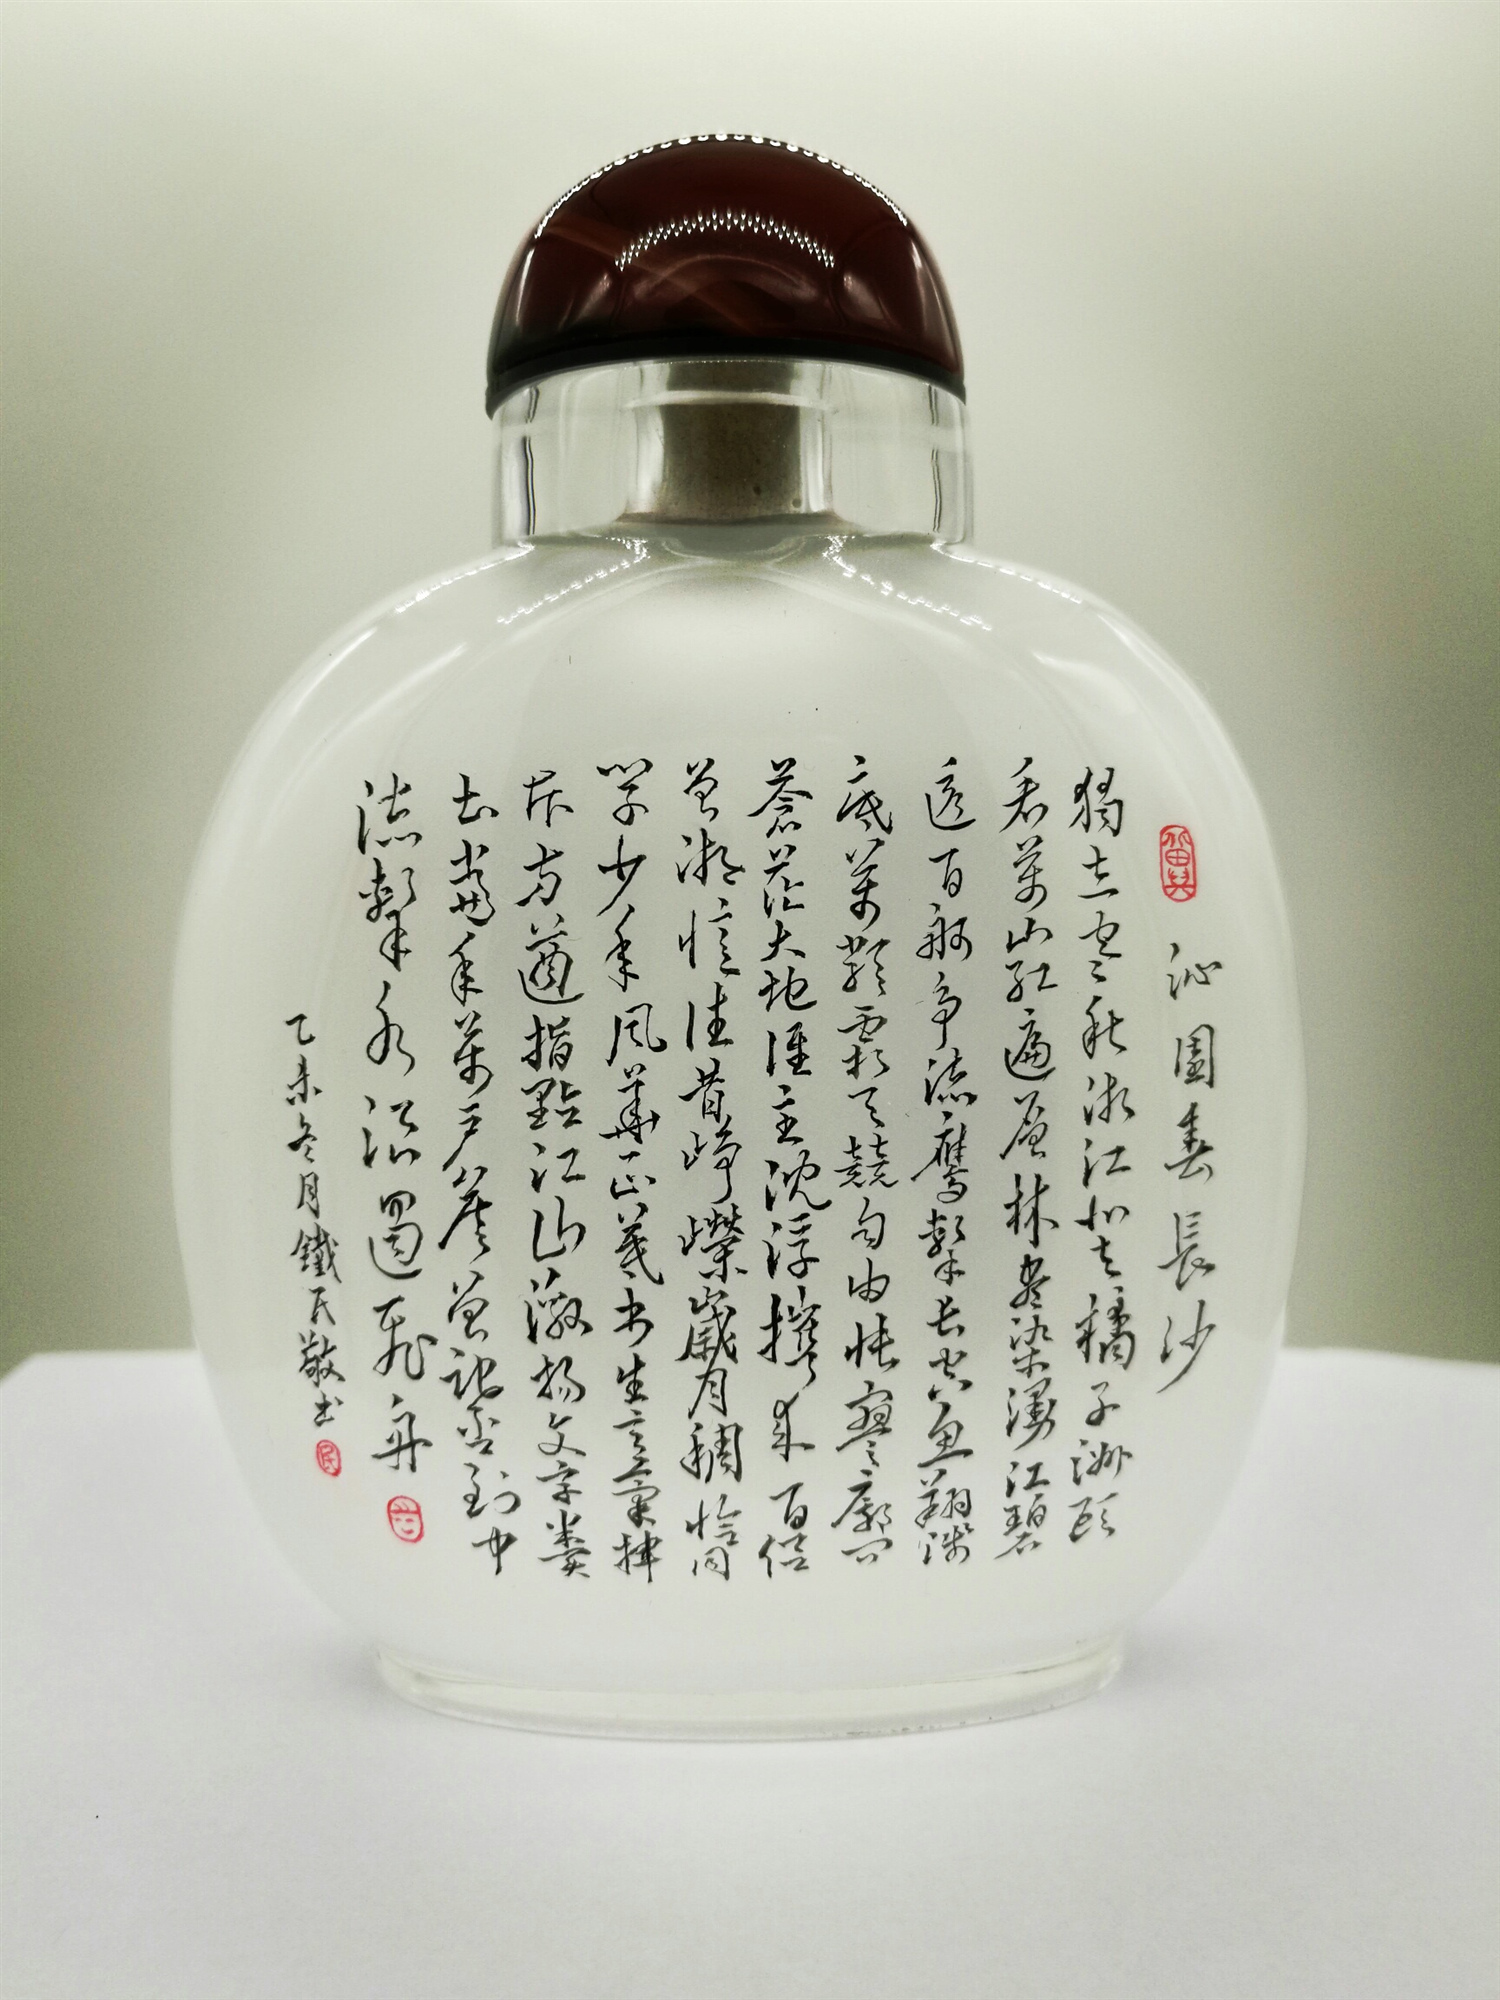 沁園春長沙
獨立寒秋湘江北去橘子洲頭
看萬山紅遍層林盡染漫江碧
透百舸爭流鷹擊長空魚翔淺
底萬類霜天競自由悵寥廓問
蒼茫大地誰主沈浮攜來百侶
曾游憶往昔崢嶸歲月稠恰同
學少年風華正茂書生意氣揮
斥方遒指點江山激揚文字糞
土當年萬戶侯曾記否到中
流擊水浪遏飛舟
乙未冬月鐵民敬書
民